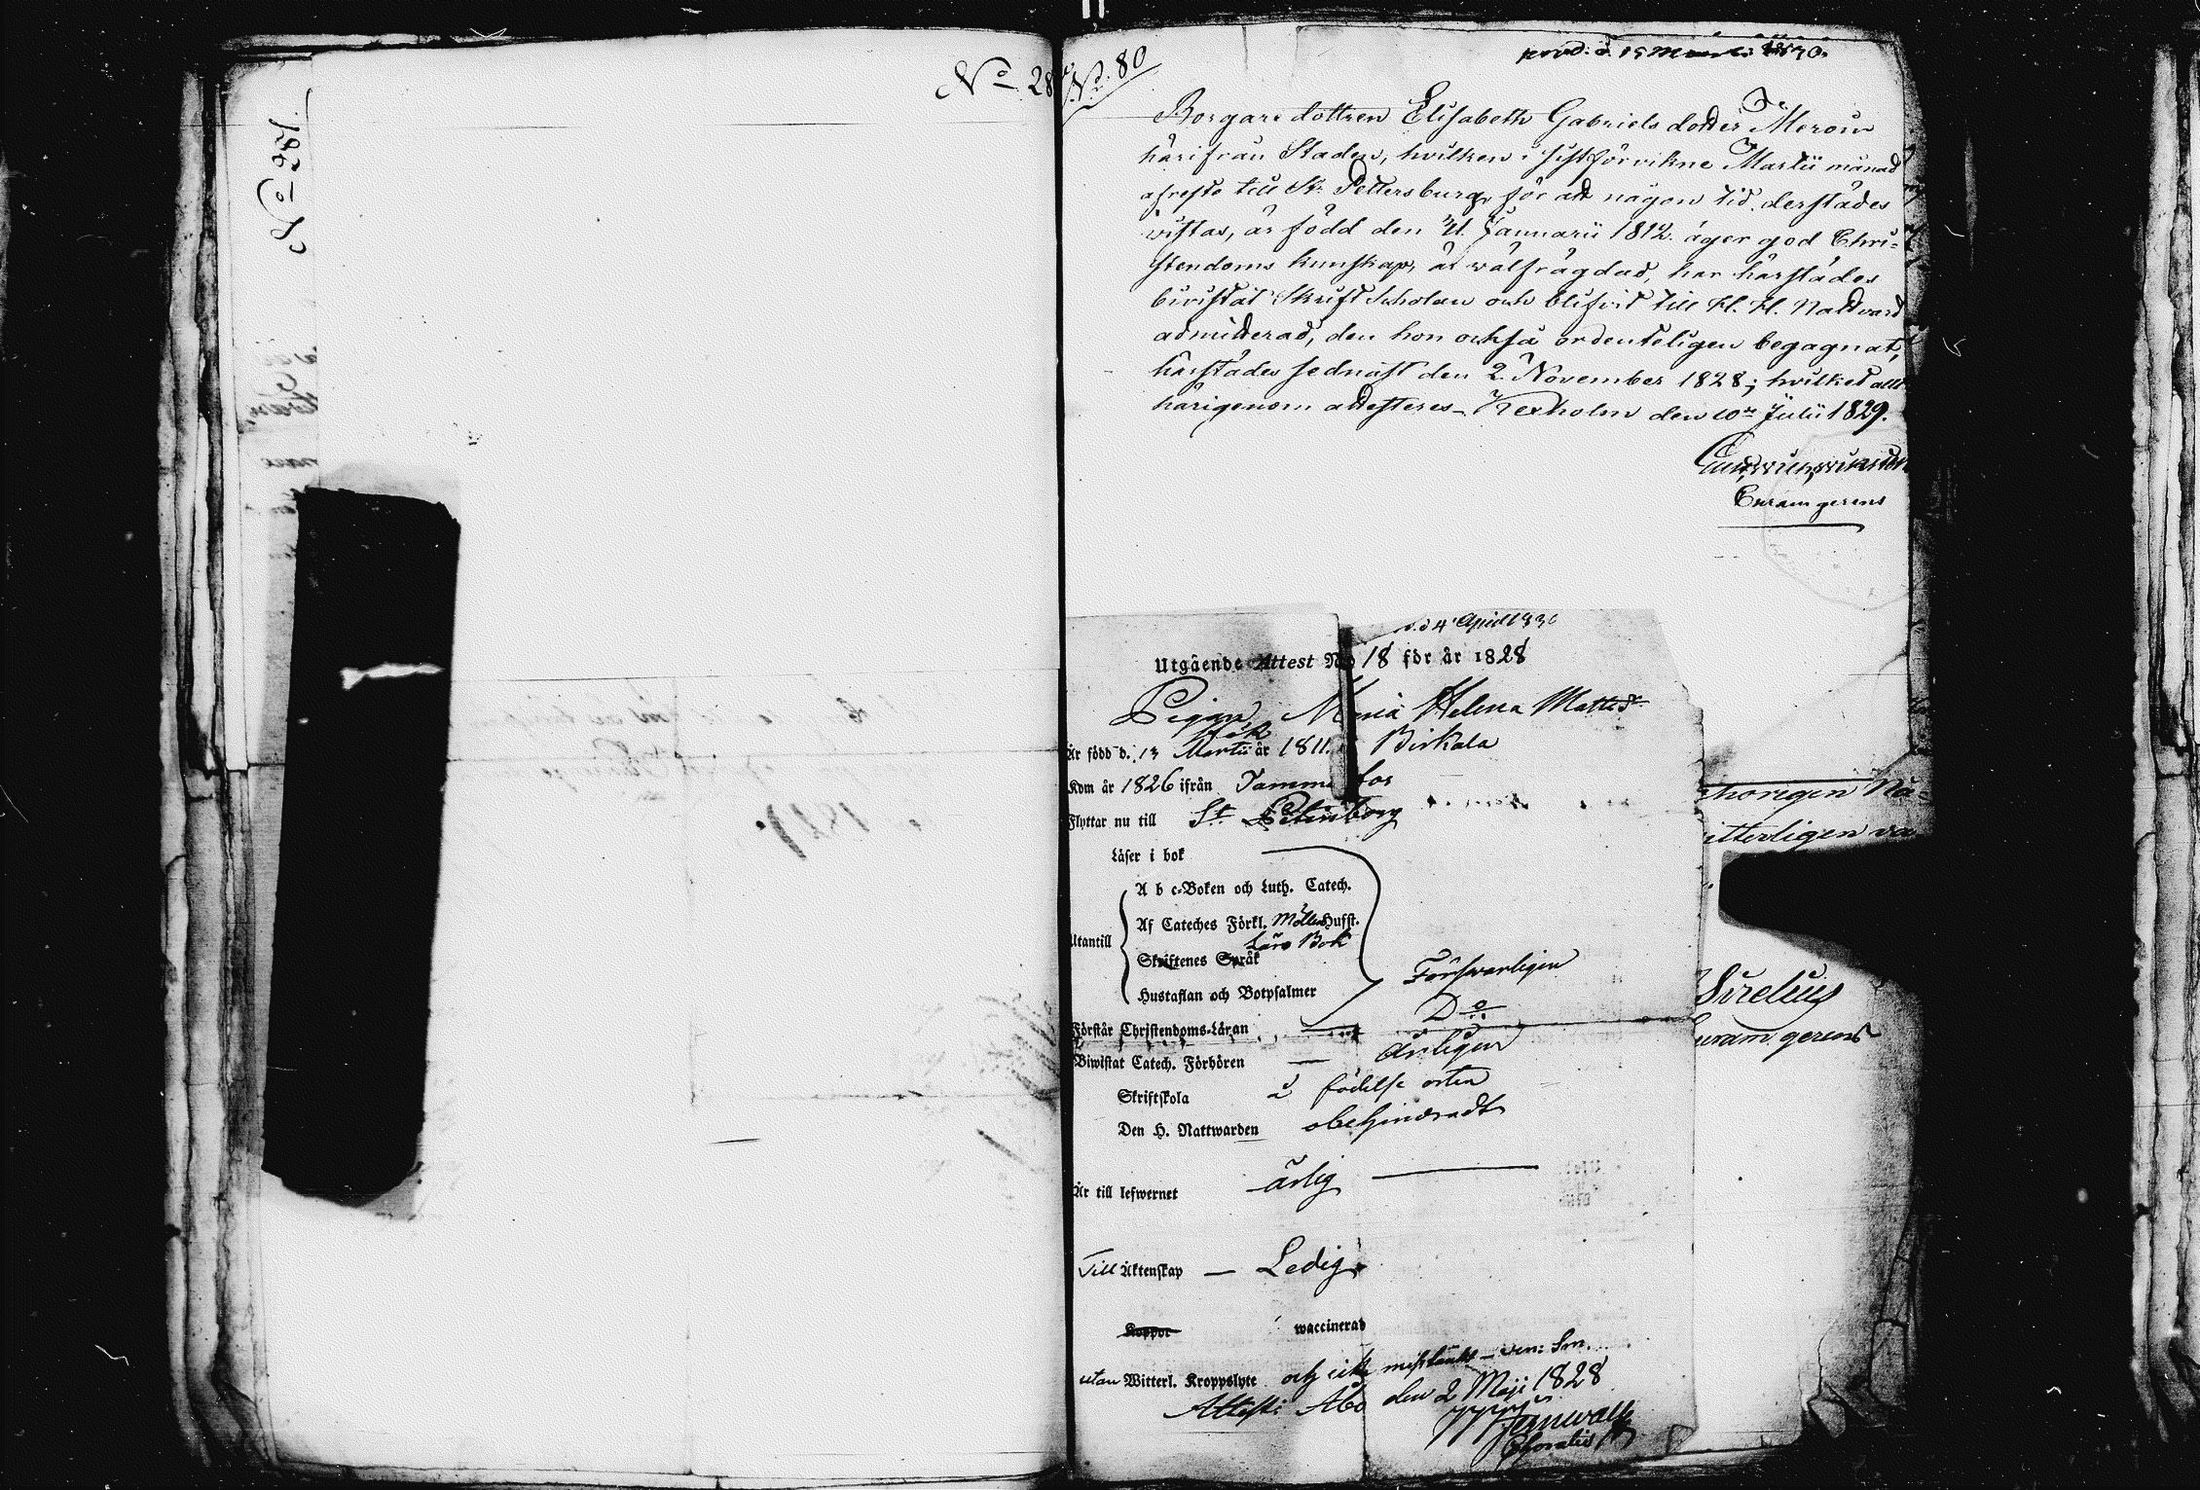 No 281.
No 28
No. 80
prod: d. 15 Martii 1830.
Borgare dottren Elisabeth Gabriels dotter Meroin
härifrån Staden, hvilken i sistförvikne Martii månad
afreste till St. Pettersburg, för att någon tid derstädes
vistas, är född den 21. Januarii 1812. äger god Chri-
stendoms kunskap, är välfrägdad, har härstädes
bivistat Skriftskolan och blifvit till H. H. Nattvard
admitterad, den hon också ordenteligen begagnat,
härstädes sednast den 2 November 1828; hvilket
härigenom attesteres. Kexholm den 10de Julii 1829.
Curam gerens
d 4 April 1830
Utgående Attest No 18 för år 1828
Pigan Maria Helena Mattsdr
Är född d. 13 Martii år 1811. Birkala
Kom år 1826 ifrån Tammerfors
Flyttar nu till St Petersborg
Läser i bok
A b c-Boken och Luth. Catech.
Af Cateches Förkl. Möllers Hufst.
Läro Bok
Utantill
Skriftenes Språk
Hustaflan och Botpsalmer Försvarligen
Förstår Christendoms-Läran — Do
Biwistat Catech. Förhören — Årligen
Skriftskola å födelse orten
Den H. Nattwarden obehindradt
Är till lefwernet ärlig
Till Äktenskap — Ledig
Koppor waccinerad
utan Witterl. Kroppslyte och icke misstänkt ven: Sm.
Attest: Åbo den 2 Maji 1828
thorigen
itterligen
Sirelius
Curam gerens